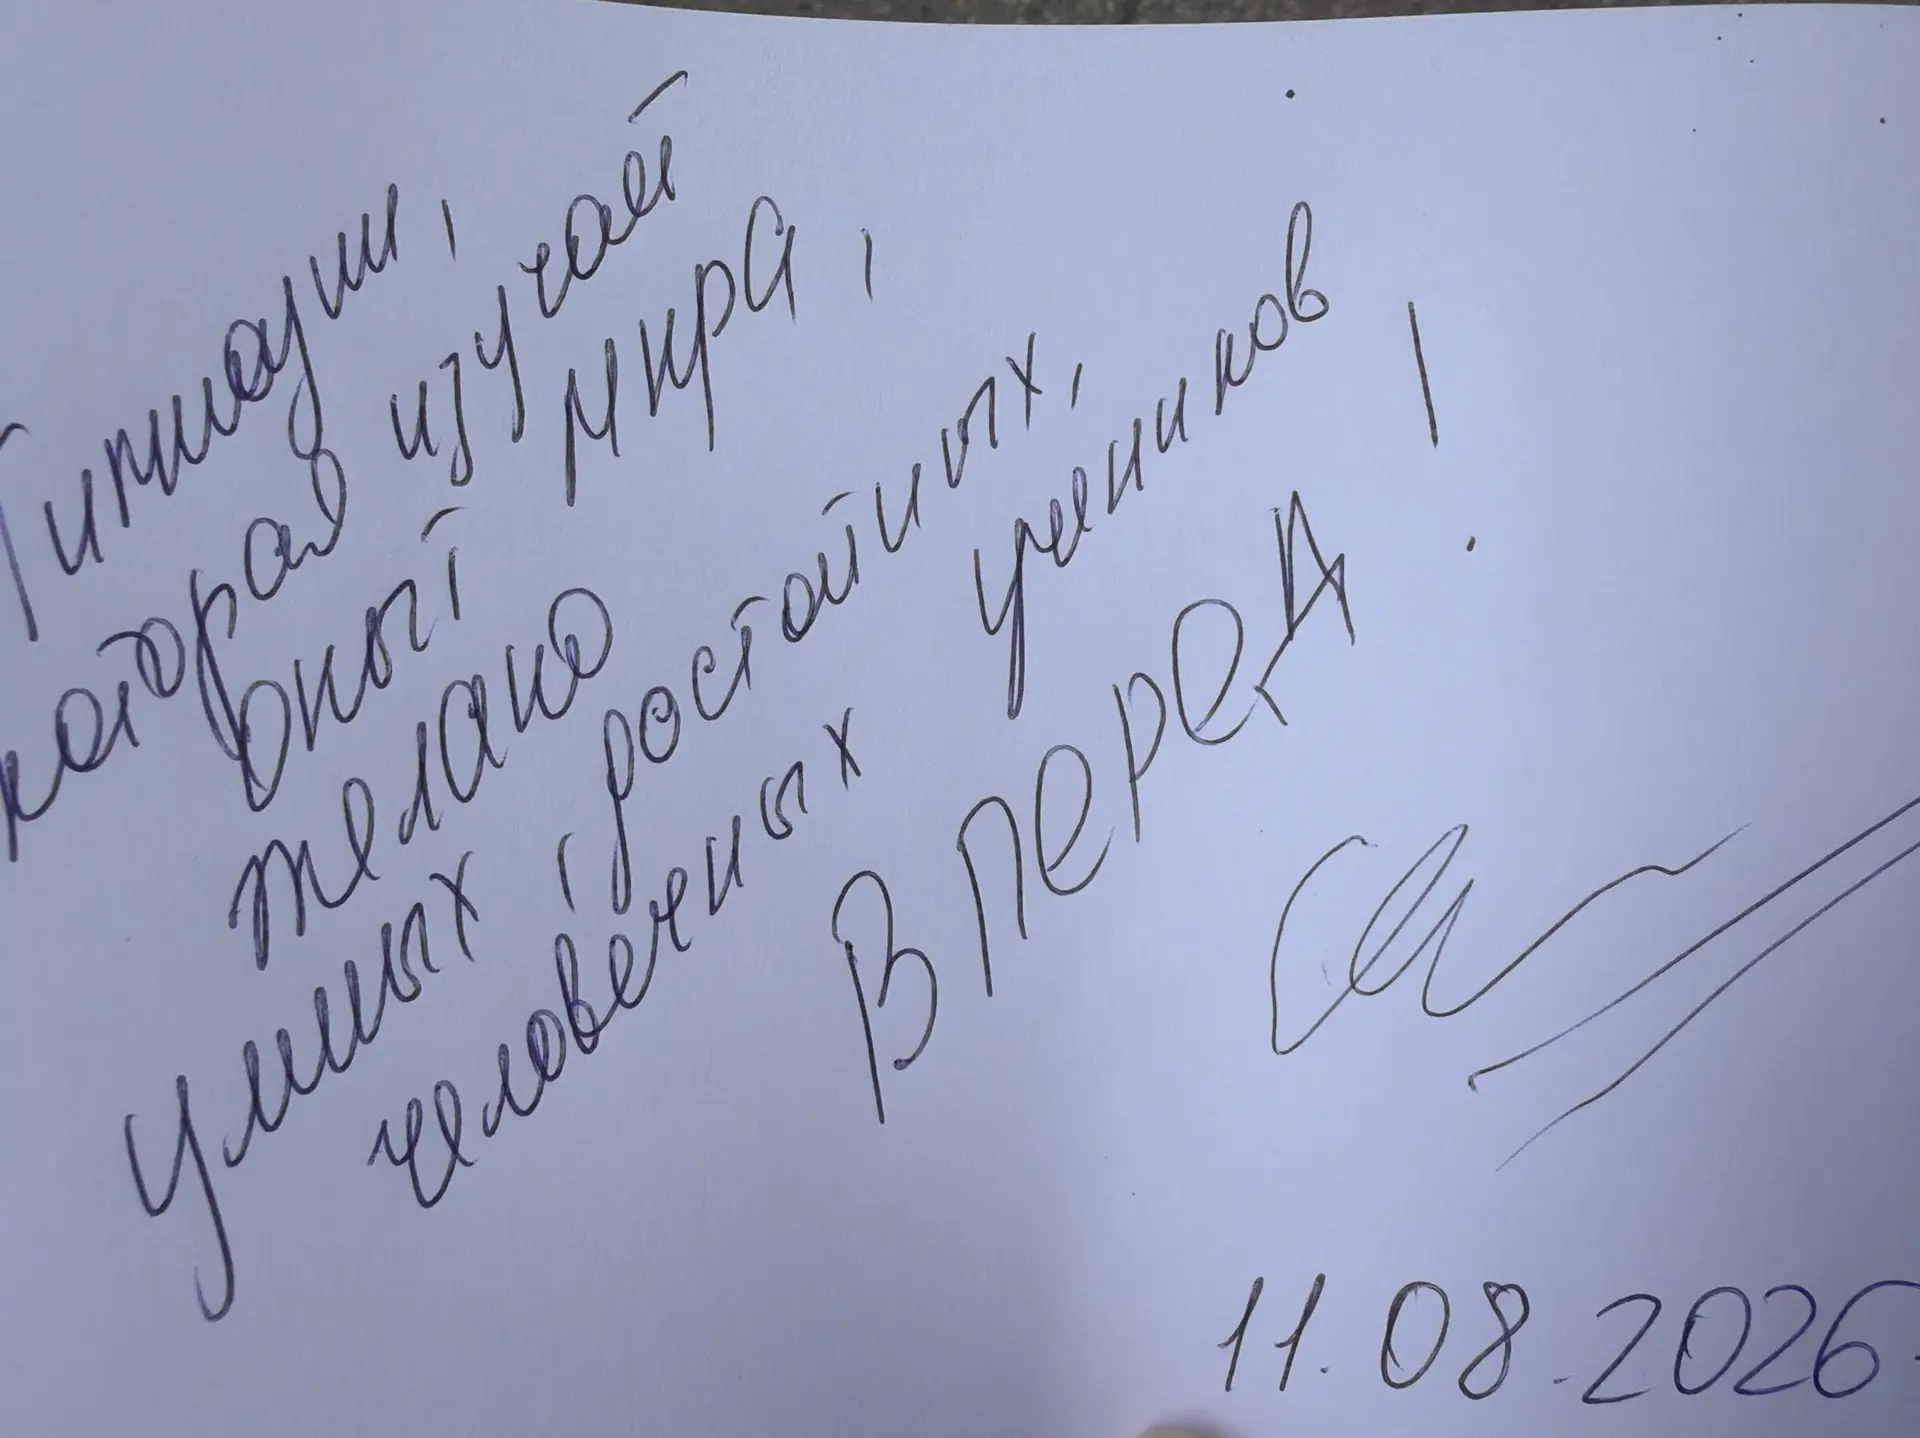 Гимназии,
которая изучает
опыт МКРА,
желаю
умных, достойных,
человечных учеников
Вперед!
11.08.2026